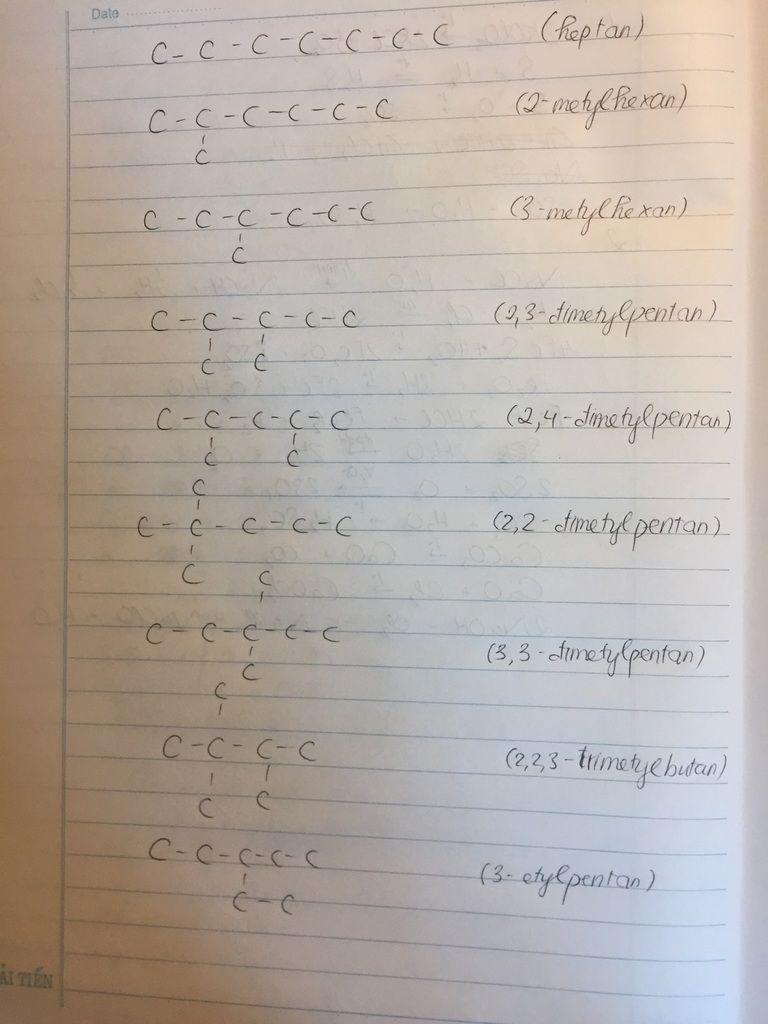 Date
C - C - C - C - C - C - C (heptan)
C - C - C - C - C - C (2-metylhexan)
C
C - C - C - C - C - C (3-metylhexan)
C
C - C - C - C - C (2,3-dimetylpentan)
C C
C - C - C - C - C (2,4-dimetylpentan)
C C
C
C - C - C - C - C (2,2-dimetylpentan)
C
C
C - C - C - C - C (3,3-dimetylpentan)
C
C
C - C - C - C (2,2,3-trimetylbutan)
C C
C - C - C - C - C (3-etylpentan)
C - C
ẢI TIẾN